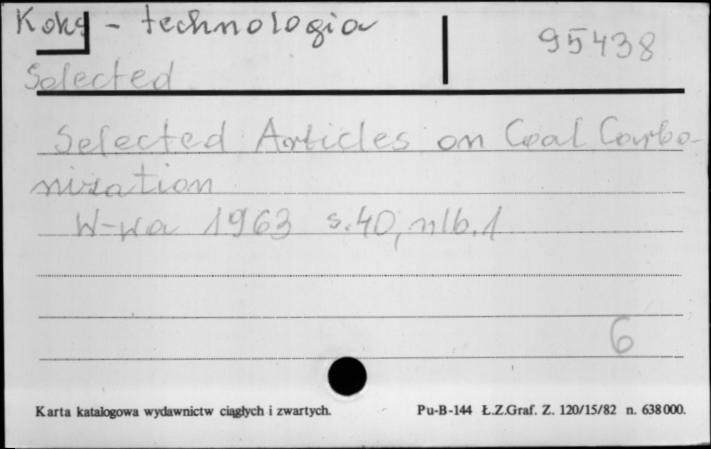 Koks - technologia
95438
Selected
Selected Articles on Coal Carbo-
nization
W-wa 1963 s. 40, nlb. 1
6
Karta katalogowa wydawnictw ciągłych i zwartych. Pu-B-144 Ł.Z.Graf. Z. 120/15/82 n. 638000.